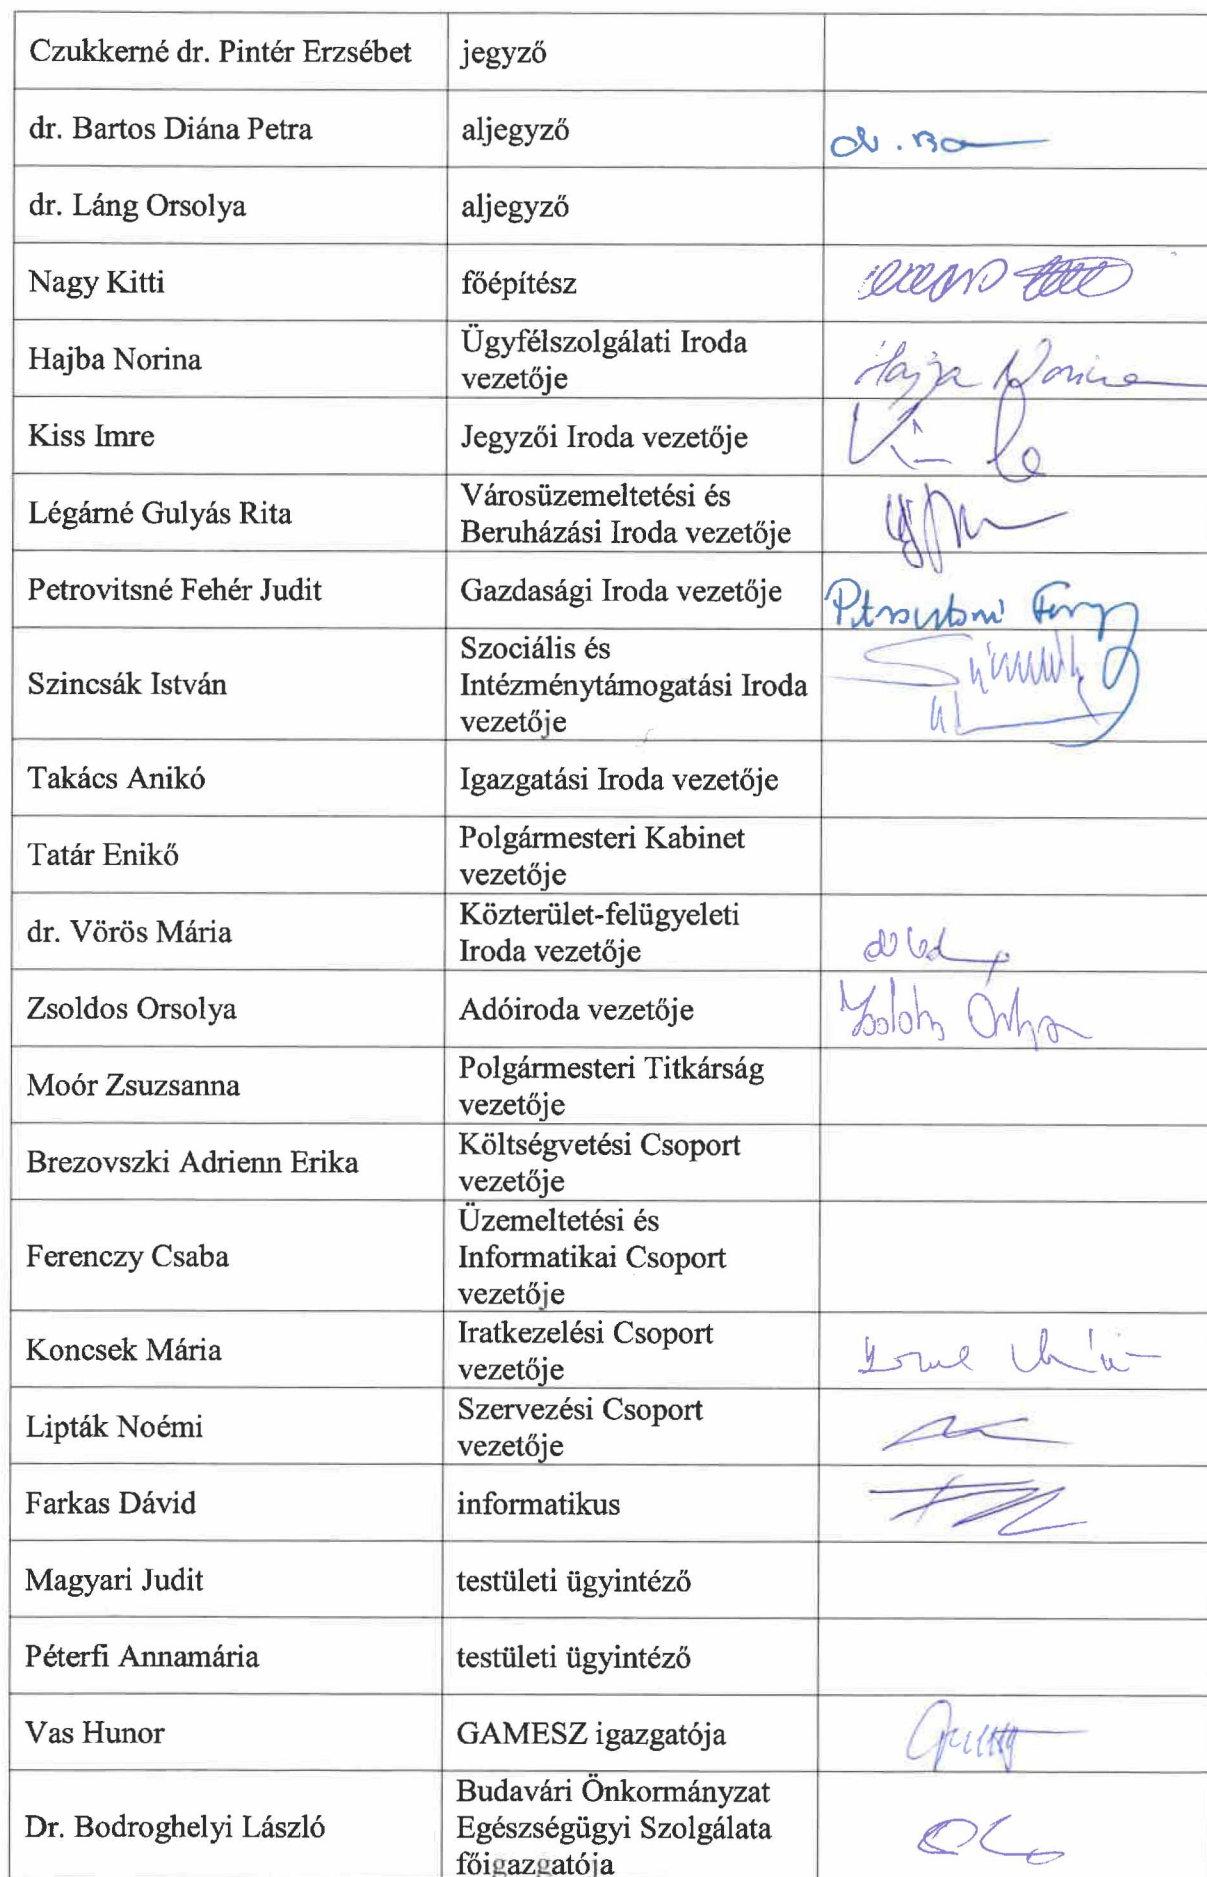 Czukkerné dr. Pintér Erzsébet
jegyző
dr. Bartos Diána Petra
aljegyző
dr. Láng Orsolya
aljegyző
Nagy Kitti
főépítész
Hajba Norina
Ügyfélszolgálati Iroda
vezetője
Kiss Imre
Jegyzői Iroda vezetője
Légárné Gulyás Rita
Városüzemeltetési és
Beruházási Iroda vezetője
Petrovitsné Fehér Judit
Gazdasági Iroda vezetője
Szincsák István
Szociális és
Intézménytámogatási Iroda
vezetője
Takács Anikó
Igazgatási Iroda vezetője
Tatár Enikő
Polgármesteri Kabinet
vezetője
dr. Vörös Mária
Közterület-felügyeleti
Iroda vezetője
Zsoldos Orsolya
Adóiroda vezetője
Moór Zsuzsanna
Polgármesteri Titkárság
vezetője
Brezovszki Adrienn Erika
Költségvetési Csoport
vezetője
Ferenczy Csaba
Üzemeltetési és
Informatikai Csoport
vezetője
Koncsek Mária
Iratkezelési Csoport
vezetője
Lipták Noémi
Szervezési Csoport
vezetője
Farkas Dávid
informatikus
Magyari Judit
testületi ügyintéző
Péterfi Annamária
testületi ügyintéző
Vas Hunor
GAMESZ igazgatója
Dr. Bodroghelyi László
Budavári Önkormányzat
Egészségügyi Szolgálata
főigazgatója